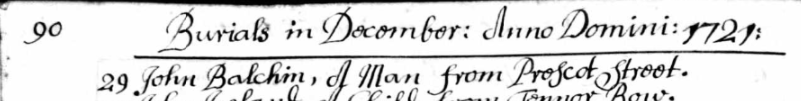 90 Burials in December: Anno Domini: 1721:
29 John Balchin, A Man from Prescot Street.
A Child from Row.